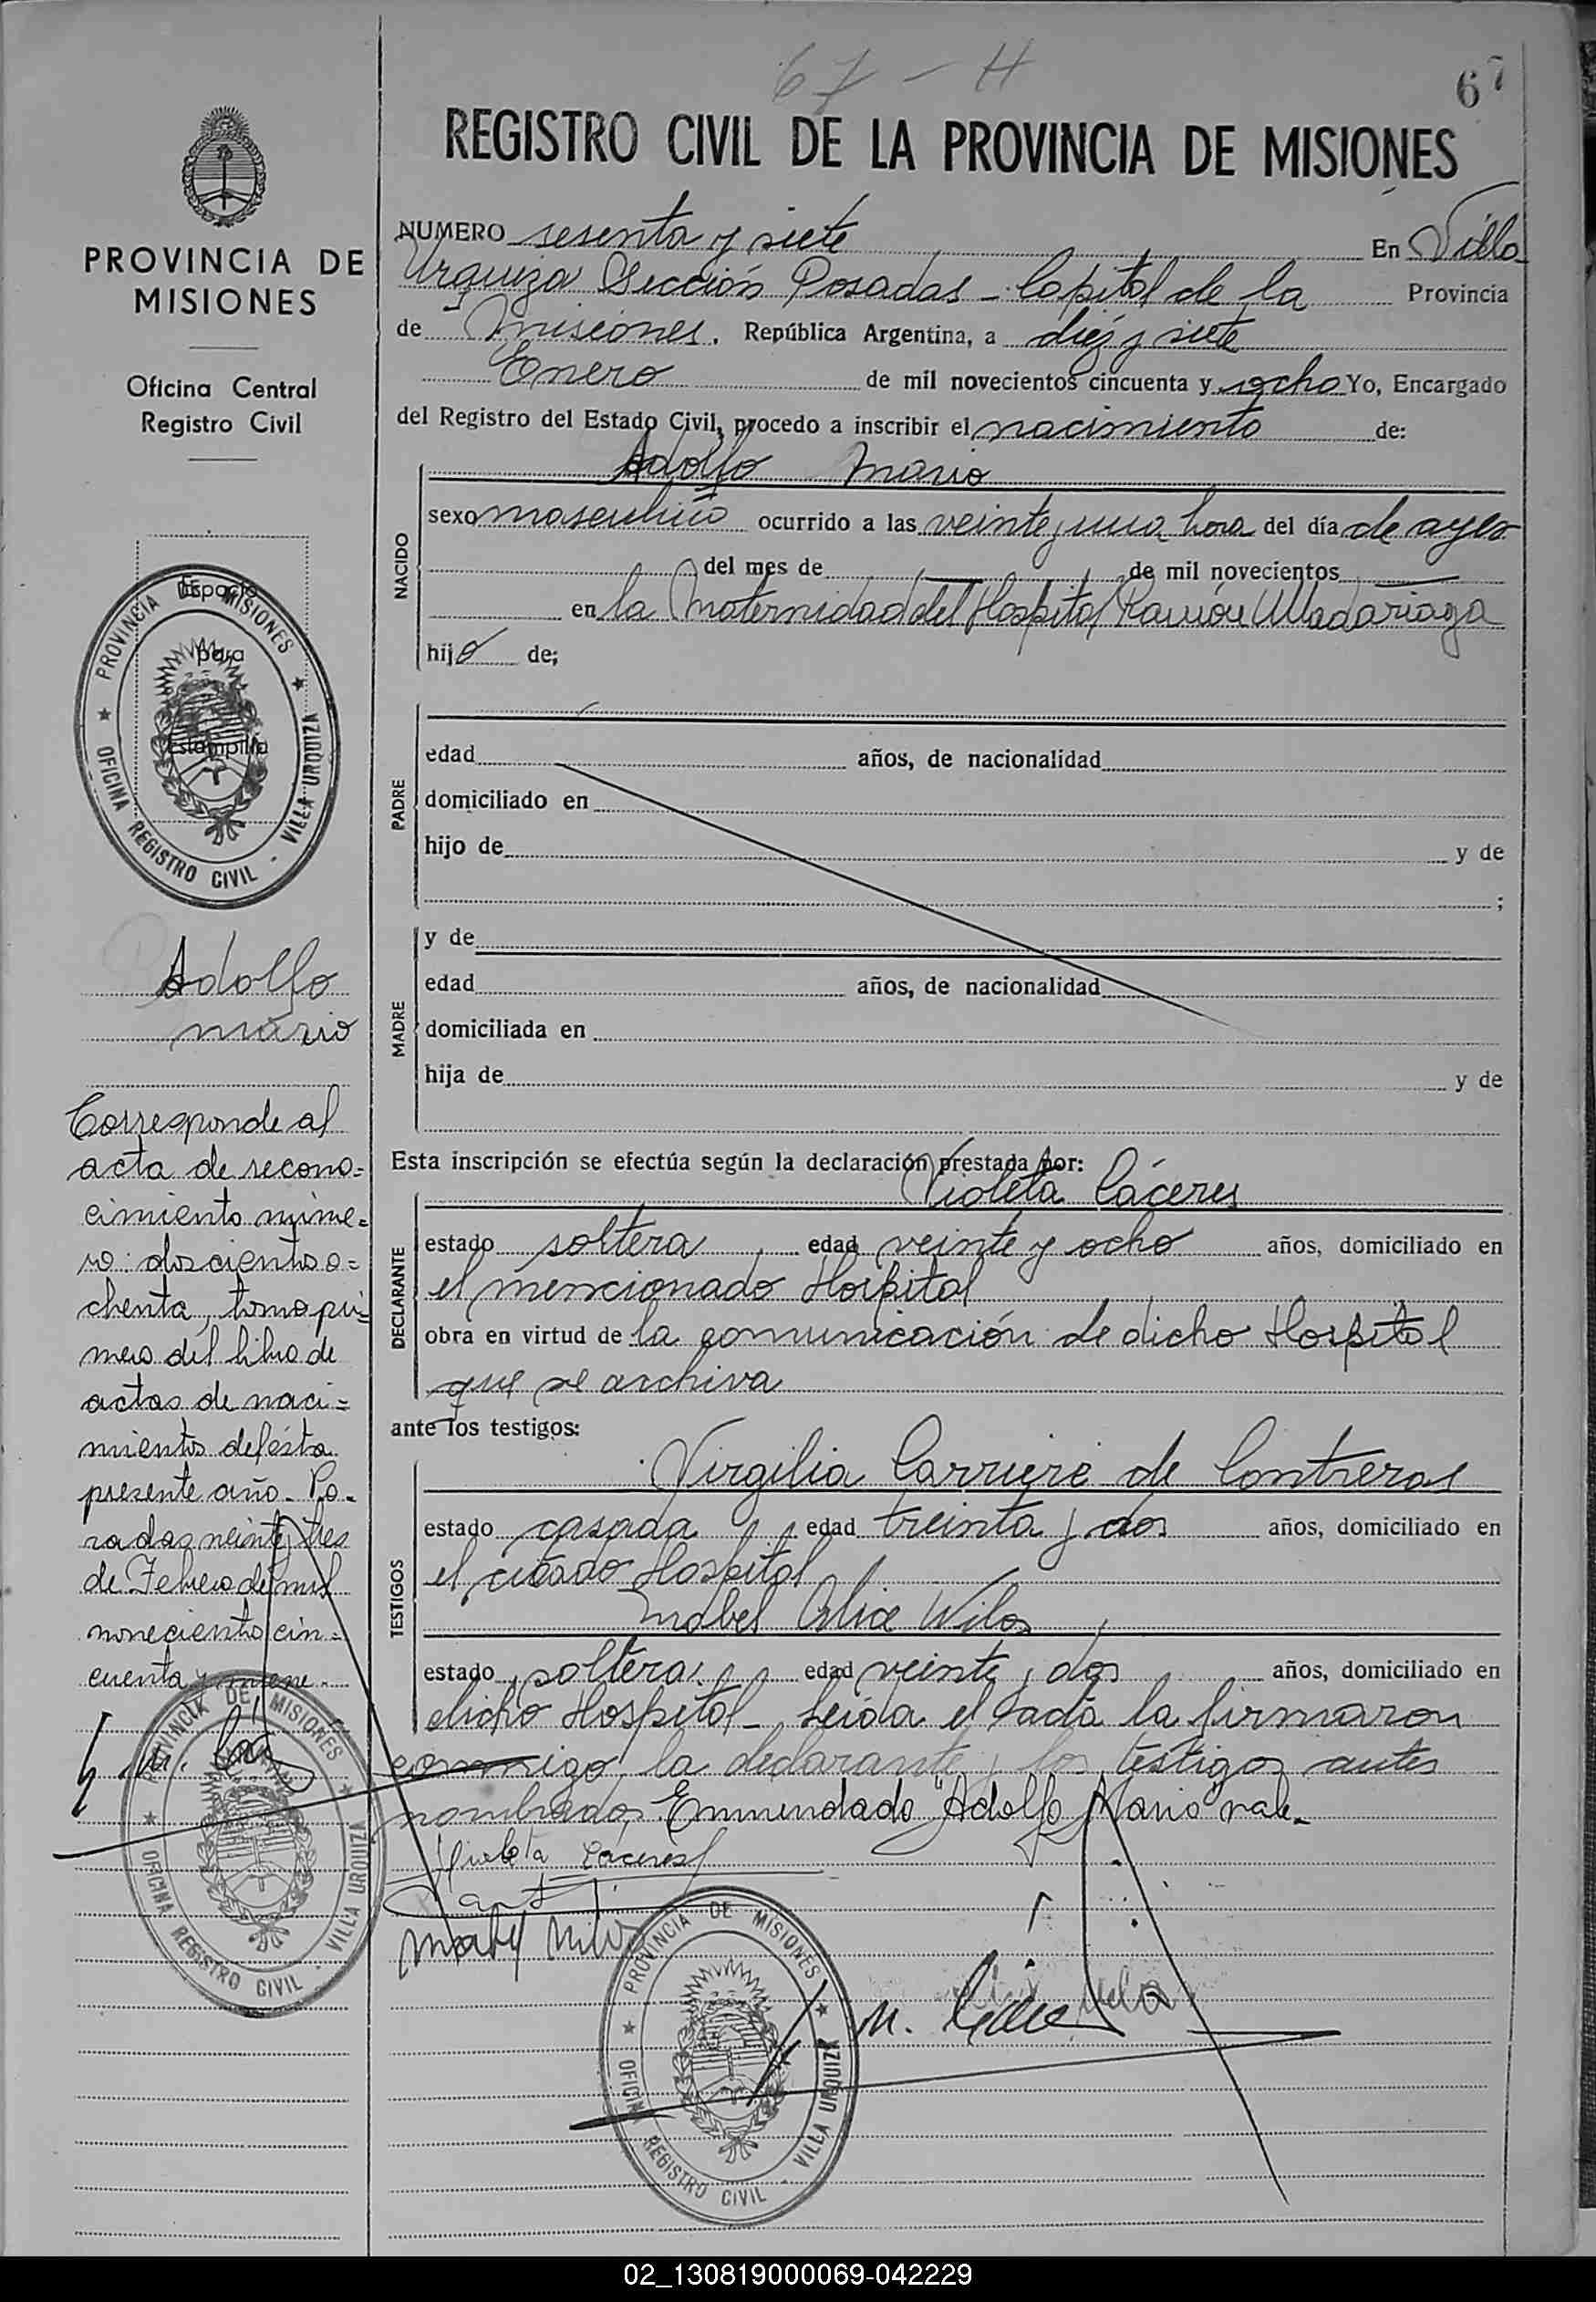 67 - H
67
REGISTRO CIVIL DE LA PROVINCIA DE MISIONES
PROVINCIA DE
MISIONES
Oficina Central
Registro Civil
Espacio
para
Estampilla
PROVINCIA DE MISIONES
OFICINA REGISTRO CIVIL - VILLA URQUIZA
Adolfo
mario
Corresponde al
acta de recono=
cimiento núme=
ro: doscientos o=
chenta, tomo pri=
mero del libro de
actas de naci=
mientos de ésta
presente año. Po-
sadas veinte y tres
de Febrero de mil
novecientos cin=
cuenta y nueve.
PROVINCIA DE MISIONES
OFICINA REGISTRO CIVIL - VILLA URQUIZA
NUMERO sesenta y siete En Villa
Urquiza Sección Posadas - Capital de la Provincia
de Misiones. República Argentina, a diez y siete
Enero de mil novecientos cincuenta y ocho Yo, Encargado
del Registro del Estado Civil, procedo a inscribir el nacimiento de:
NACIDO
Adolfo Mario
sexo masculino ocurrido a las veinte y una hora del día de ayer
del mes de de mil novecientos
en la Maternidad del Hospital Ramón Madariaga
hijo de;
PADRE
edad años, de nacionalidad
domiciliado en
hijo de y de
;
MADRE
y de
edad años, de nacionalidad
domiciliada en
hija de y de
Esta inscripción se efectúa según la declaración prestada por:
DECLARANTE
Violeta Cáceres
estado soltera edad veinte y ocho años, domiciliado en
el mencionado Hospital
obra en virtud de la comunicación de dicho Hospital
que se archiva
ante los testigos:
TESTIGOS
Virgilia Carriere de Contreras
estado casada edad treinta y dos años, domiciliado en
el citado Hospital
Mabel Alice Wilos
estado soltera edad veinte y dos años, domiciliado en
dicho Hospital - Leída el acta la firmaron
conmigo la declarante y los testigos antes
nombrados. Enmendado "Adolfo Mario" vale.
Violeta Cáceres
PROVINCIA DE MISIONES
OFICINA REGISTRO CIVIL - VILLA URQUIZA
02_130819000069-042229